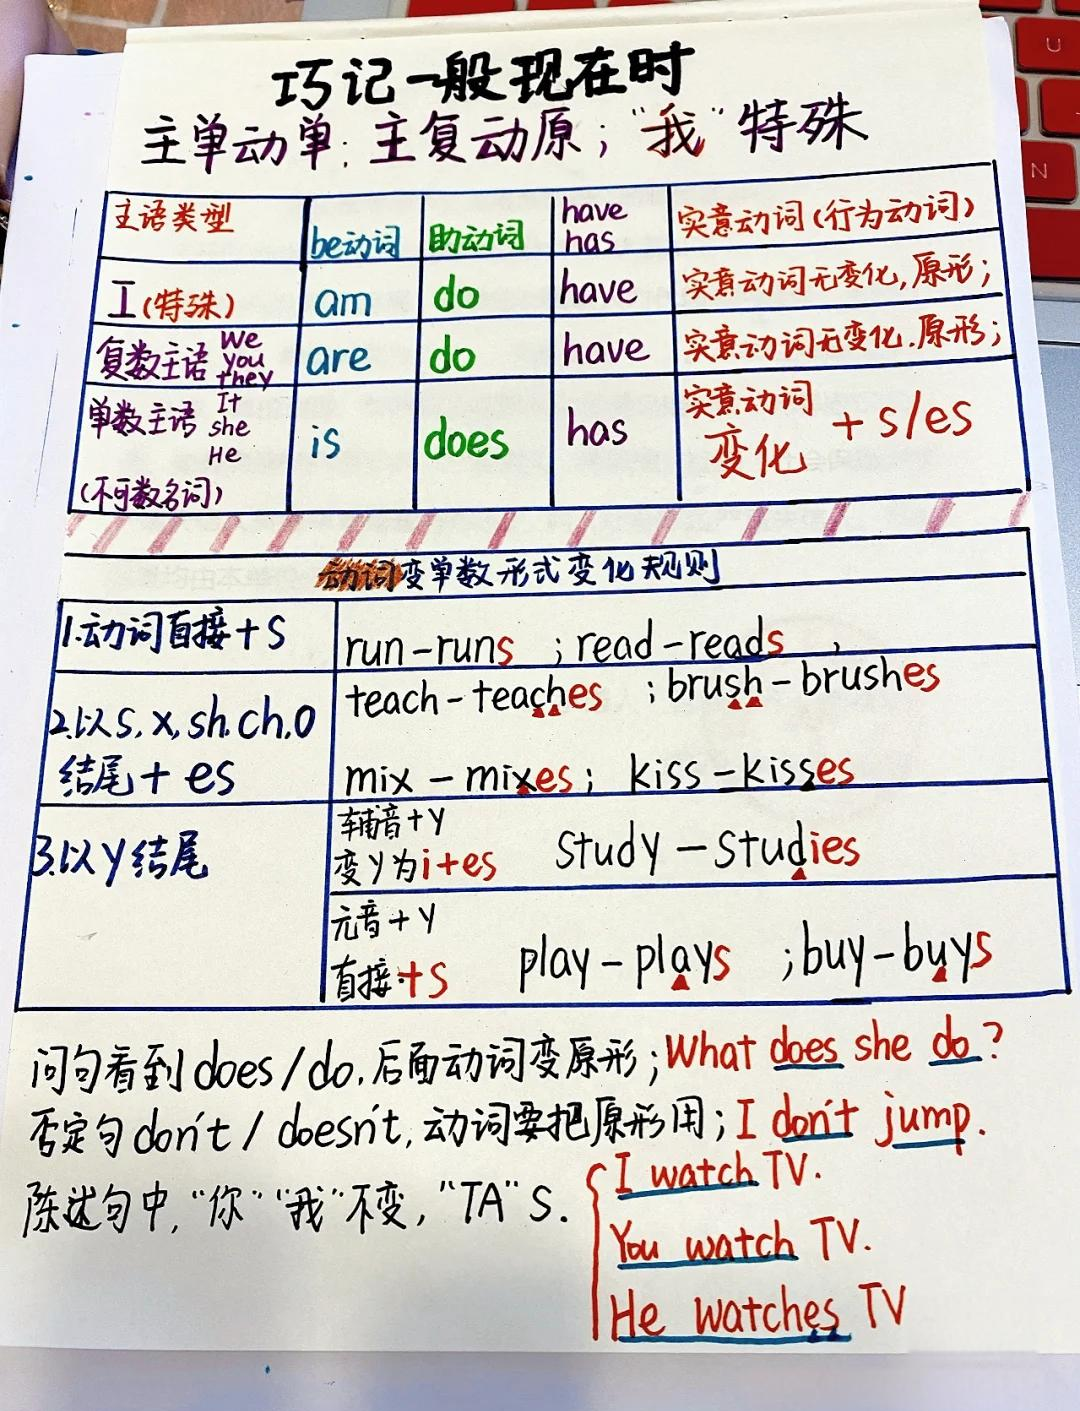 U
N
巧记一般现在时
主单动单;主复动原;"我"特殊
主语类型 be动词 助动词 have has 实意动词(行为动词)
I(特殊) am do have 实意动词无变化,原形;
复数主语 We you they are do have 实意动词无变化.原形;
单数主语 It she He (不可数名词) is does has 实意动词变化 + s/es
动词变单数形式变化规则
1.动词直接+s run-runs ; read-reads ,
2.以s,x,sh.ch.o 结尾+es teach-teaches ; brush-brushes
mix-mixes; kiss-kisses
3.以y结尾 辅音+y 变y为i+es study-studies
元音+y 直接+s play-plays ; buy-buys
问句看到does/do.后面动词变原形;What does she do?
否定句don't/doesn't,动词要把原形用;I don't jump.
陈述句中,"你""我"不变,"TA"S.
I watch TV.
You watch TV.
He watches TV